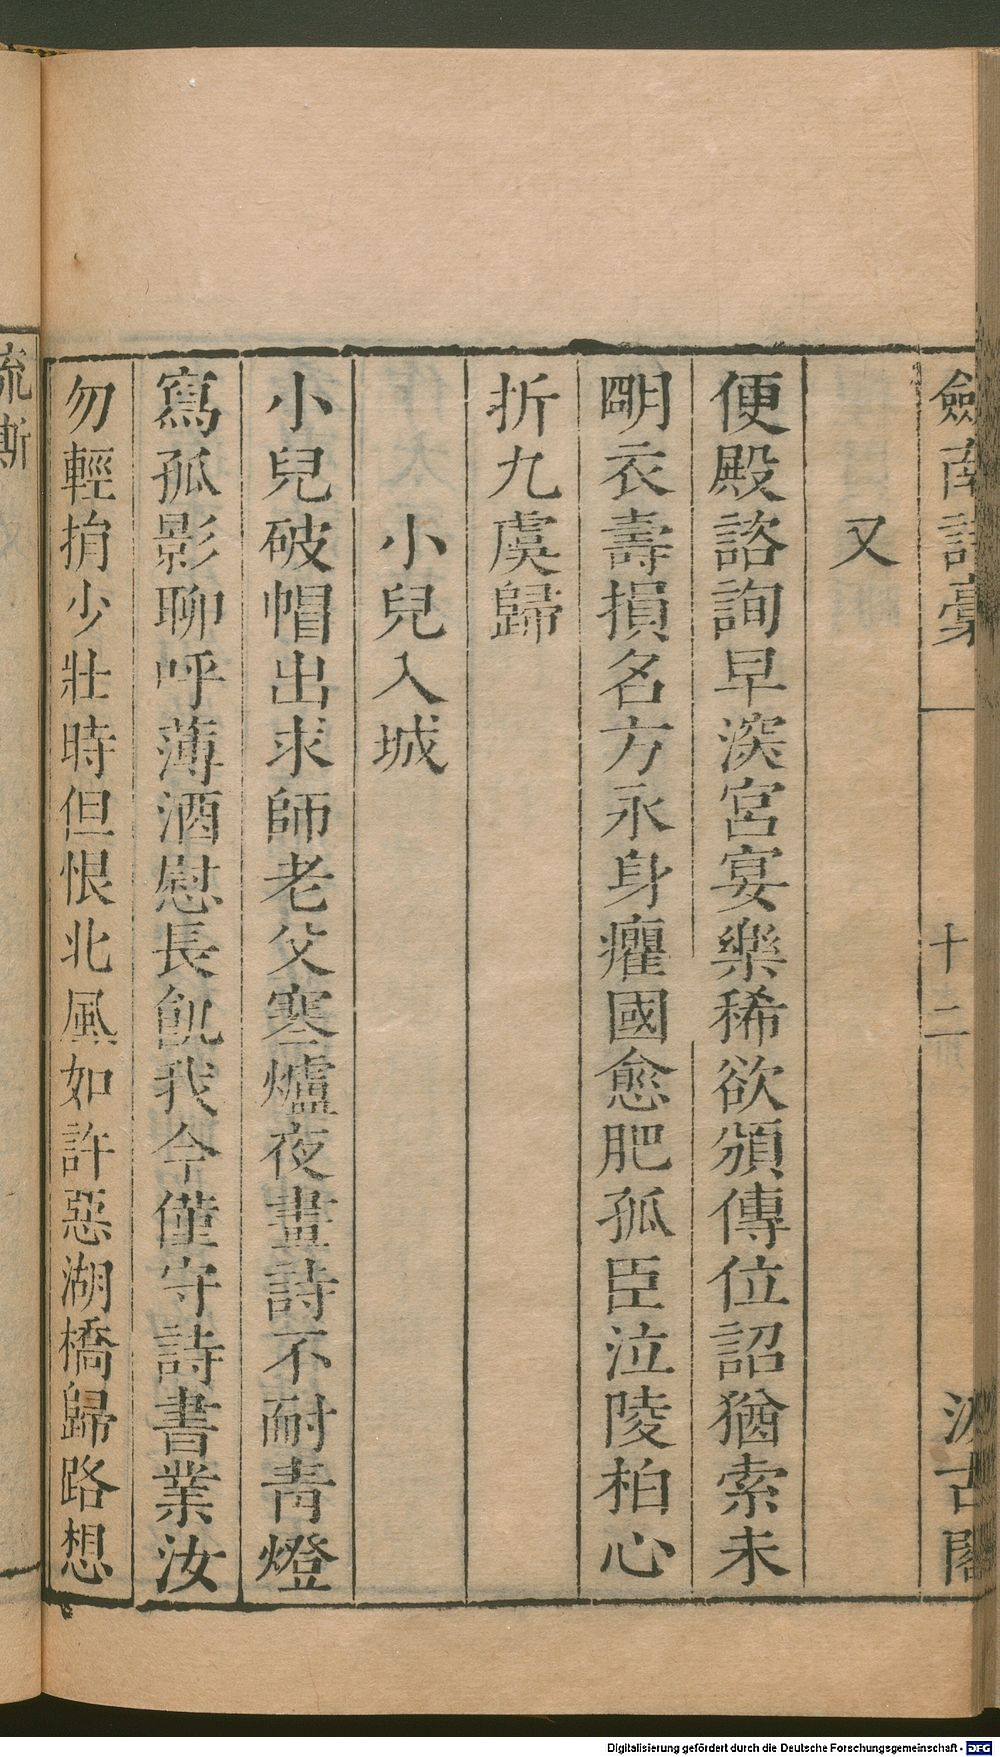 劍南詩稾
十二
汲古閣
又
便殿諮詢早深宮宴樂稀欲頒傳位詔猶索未
明衣壽損名方永身癯國愈肥孤臣泣陵柏心
折九虞歸
小兒入城
小兒破帽出求師老父寒爐夜畫詩不耐青燈
寫孤影聊呼薄酒慰長飢我今僅守詩書業汝
勿輕捐少壯時但恨北風如許惡湖橋歸路想
流澌
Digitalisierung gefördert durch die Deutsche Forschungsgemeinschaft - DFG